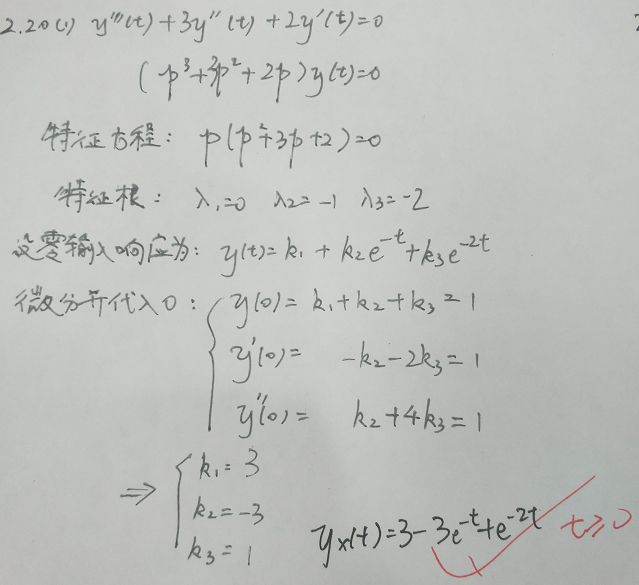 2.20(1) y'''(t)+3y''(t)+2y'(t)=0
(p³+3p²+2p)y(t)=0
特征方程: p(p²+3p+2)=0
特征根: λ₁=0 λ2=-1 λ3=-2
设零输入响应为: y(t)=k₁+k2e^{-t}+k3e^{-2t}
微分并代入0: { y(0)=k₁+k2+k3=1
y'(0)= -k2-2k3=1
y''(0)= k2+4k3=1
⇒ { k₁=3
k2=-3
k3=1
yx(t)=3-3e^{-t}+e^{-2t} t≥0